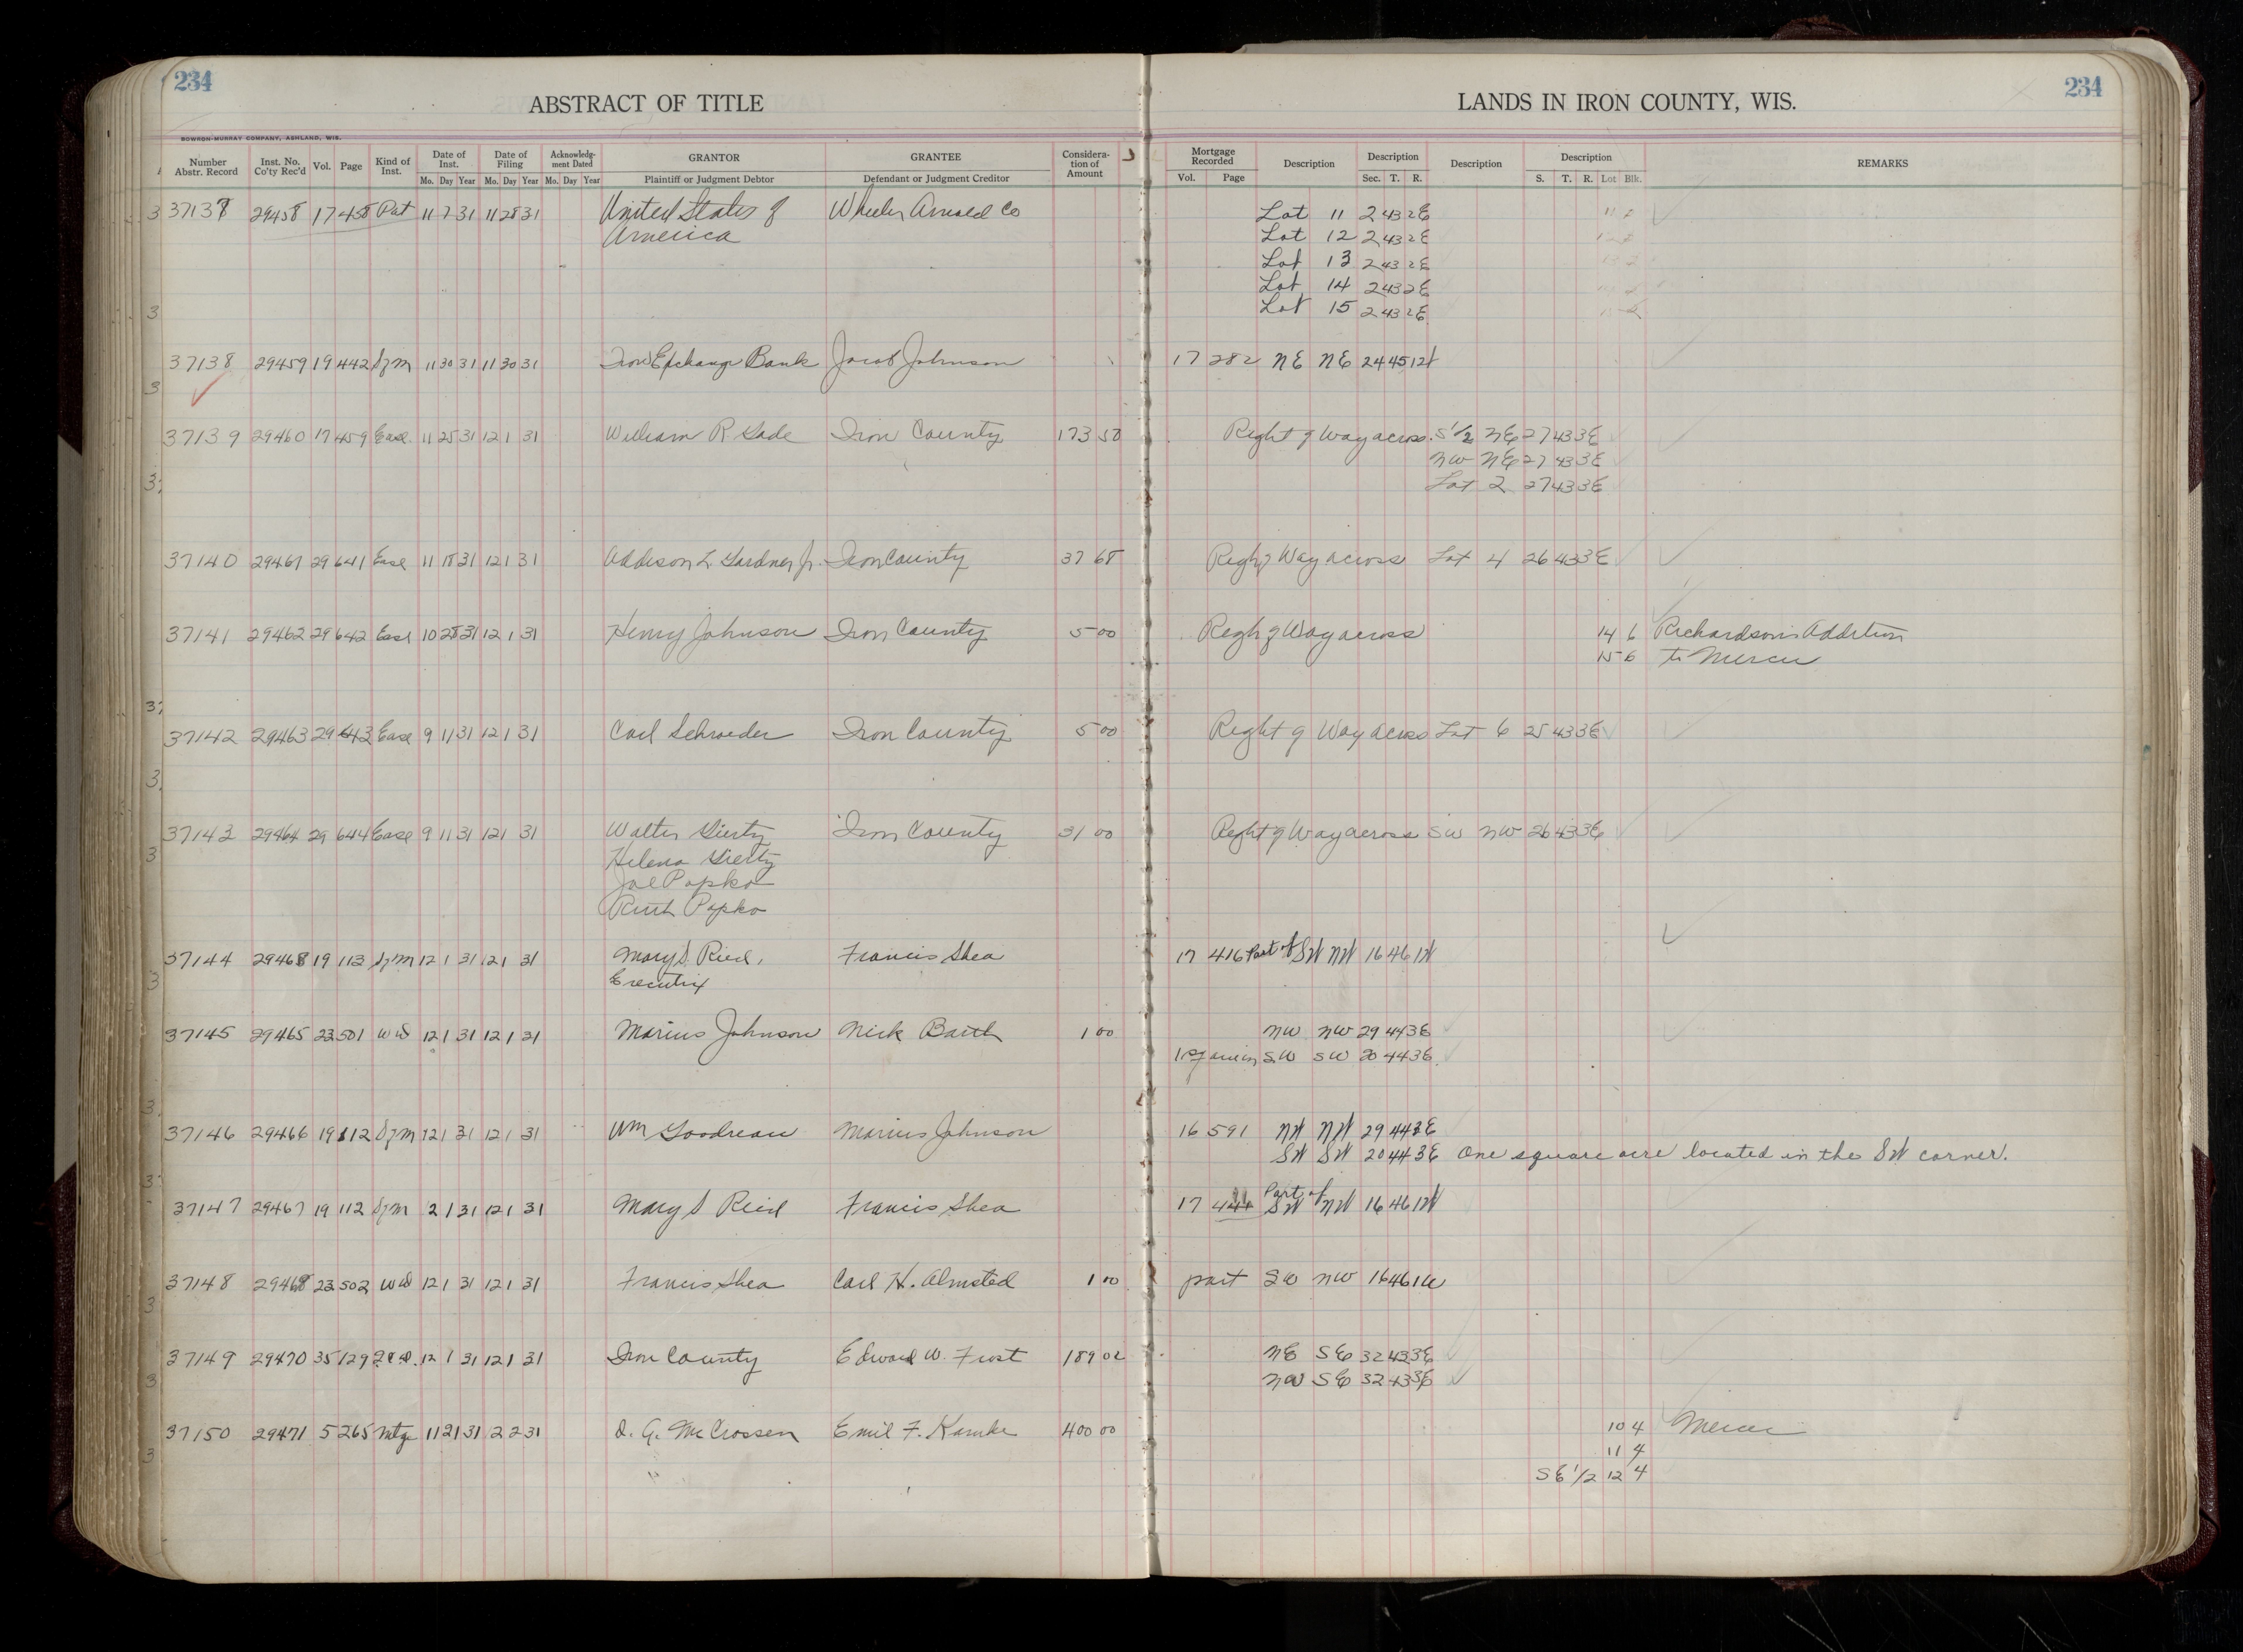 234
ABSTRACT OF TITLE
LANDS IN IRON COUNTY, WIS.
234
BOWRON-MURRAY COMPANY, ASHLAND, WIS.
Number Abstr. Record | Inst. No. Co'ty Rec'd | Vol. | Page | Kind of Inst. | Date of Inst. Mo. Day Year | Date of Filing Mo. Day Year | Acknowledg-ment Dated Mo. Day Year | GRANTOR Plaintiff or Judgment Debtor | GRANTEE Defendant or Judgment Creditor | Considera-tion of Amount | Mortgage Recorded Vol. Page | Description | Description Sec. T. R. | Description | Description S. T. R. Lot Blk. | REMARKS
37137 29458 17 458 Pat 11 7 31 11 28 31 United States of Wheeler Arnold Co Lot 11 2 43 2E
America Lot 12 2 43 2E
Lot 13 2 43 2E
Lot 14 2 43 2E
Lot 15 2 43 2E
37138 29459 19 442 Szm 11 30 31 11 30 31 Iron Exchange Bank Jacob Johnson 17 282 NE NE 24 45 1W
37139 29460 17 459 Ease. 11 25 31 12 1 31 William R. Gade Iron County 173 50 Right of Way across S 1/2 NE 27 43 3E
NW NE 27 43 3E
Lot 2 27 43 3E
37140 29461 29 641 Ease 11 18 31 12 1 31 Addison L. Gardner Jr. Iron County 37 68 Righ of Way across Lot 4 26 43 3E
37141 29462 29 642 Ease 10 28 31 12 1 31 Henry Johnson Iron County 5 00 Righ of Way across 14 6 Richardson's Addition
15 6 to Mercer
37142 29463 29 643 Ease 9 11 31 12 1 31 Carl Schroeder Iron County 5 00 Right of Way across Lot 6 25 43 3E
37143 29464 29 644 Ease 9 11 31 12 1 31 Walter Gierty Iron County 31 00 Right of Way across SW NW 26 43 3E
Helena Gierty
Joe Popko
Ruth Popko
37144 29468 19 113 Szm 12 1 31 12 1 31 Mary S. Ried, Francis Shea 17 416 Part of SW NW 16 46 1W
Executrix
37145 29465 23 501 WD 12 1 31 12 1 31 Marius Johnson Nick Barth 1 00 NW NW 29 44 3E
SW SW 20 44 3E
37146 29466 19 112 Szm 12 1 31 12 1 31 Wm Goodreau Marius Johnson 16 591 NW NW 29 44 3E
SW SW 20 44 3E One square acre located in the SW corner.
37147 29467 19 112 Szm 2 1 31 12 1 31 Mary S Ried Francis Shea 17 Part of SW NW 16 46 1W
37148 29468 23 502 WD 12 1 31 12 1 31 Francis Shea Carl H. Almsted 1 00 part SW NW 16 46 1W
37149 29470 35 129 12 1 31 12 1 31 Iron County Edward W. Frost 189 02 NE SE 32 43 3E
NW SE 32 43 3E
37150 29471 5 265 Mtge 11 21 31 12 2 31 D. G. McCrossen Emil F. Kamke 400 00 10 4 Mercer
11 4
SE 1/2 12 4